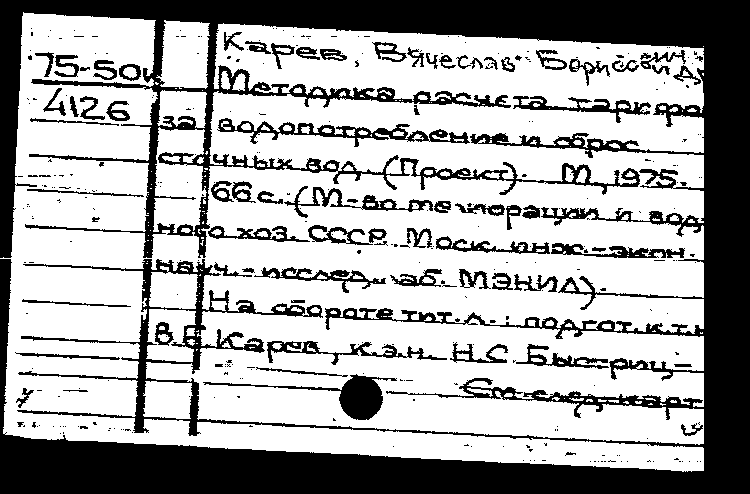 Карев, Вячеслав Борисович и др.
75-50к
Методика расчета тарифов
4126
за водопотребление и сброс
сточных вод. (Проект). М., 1975.
66 с. (М-во мелиорации и вод-
ного хоз. СССР. Моск. инж.-экон.
науч.-исслед. лаб. МЭНИЛ).
На обороте тит. л.: подгот. к.т.н.
В.Б. Карев, к.э.н. Н.С. Быстриц-
См. след. карт.